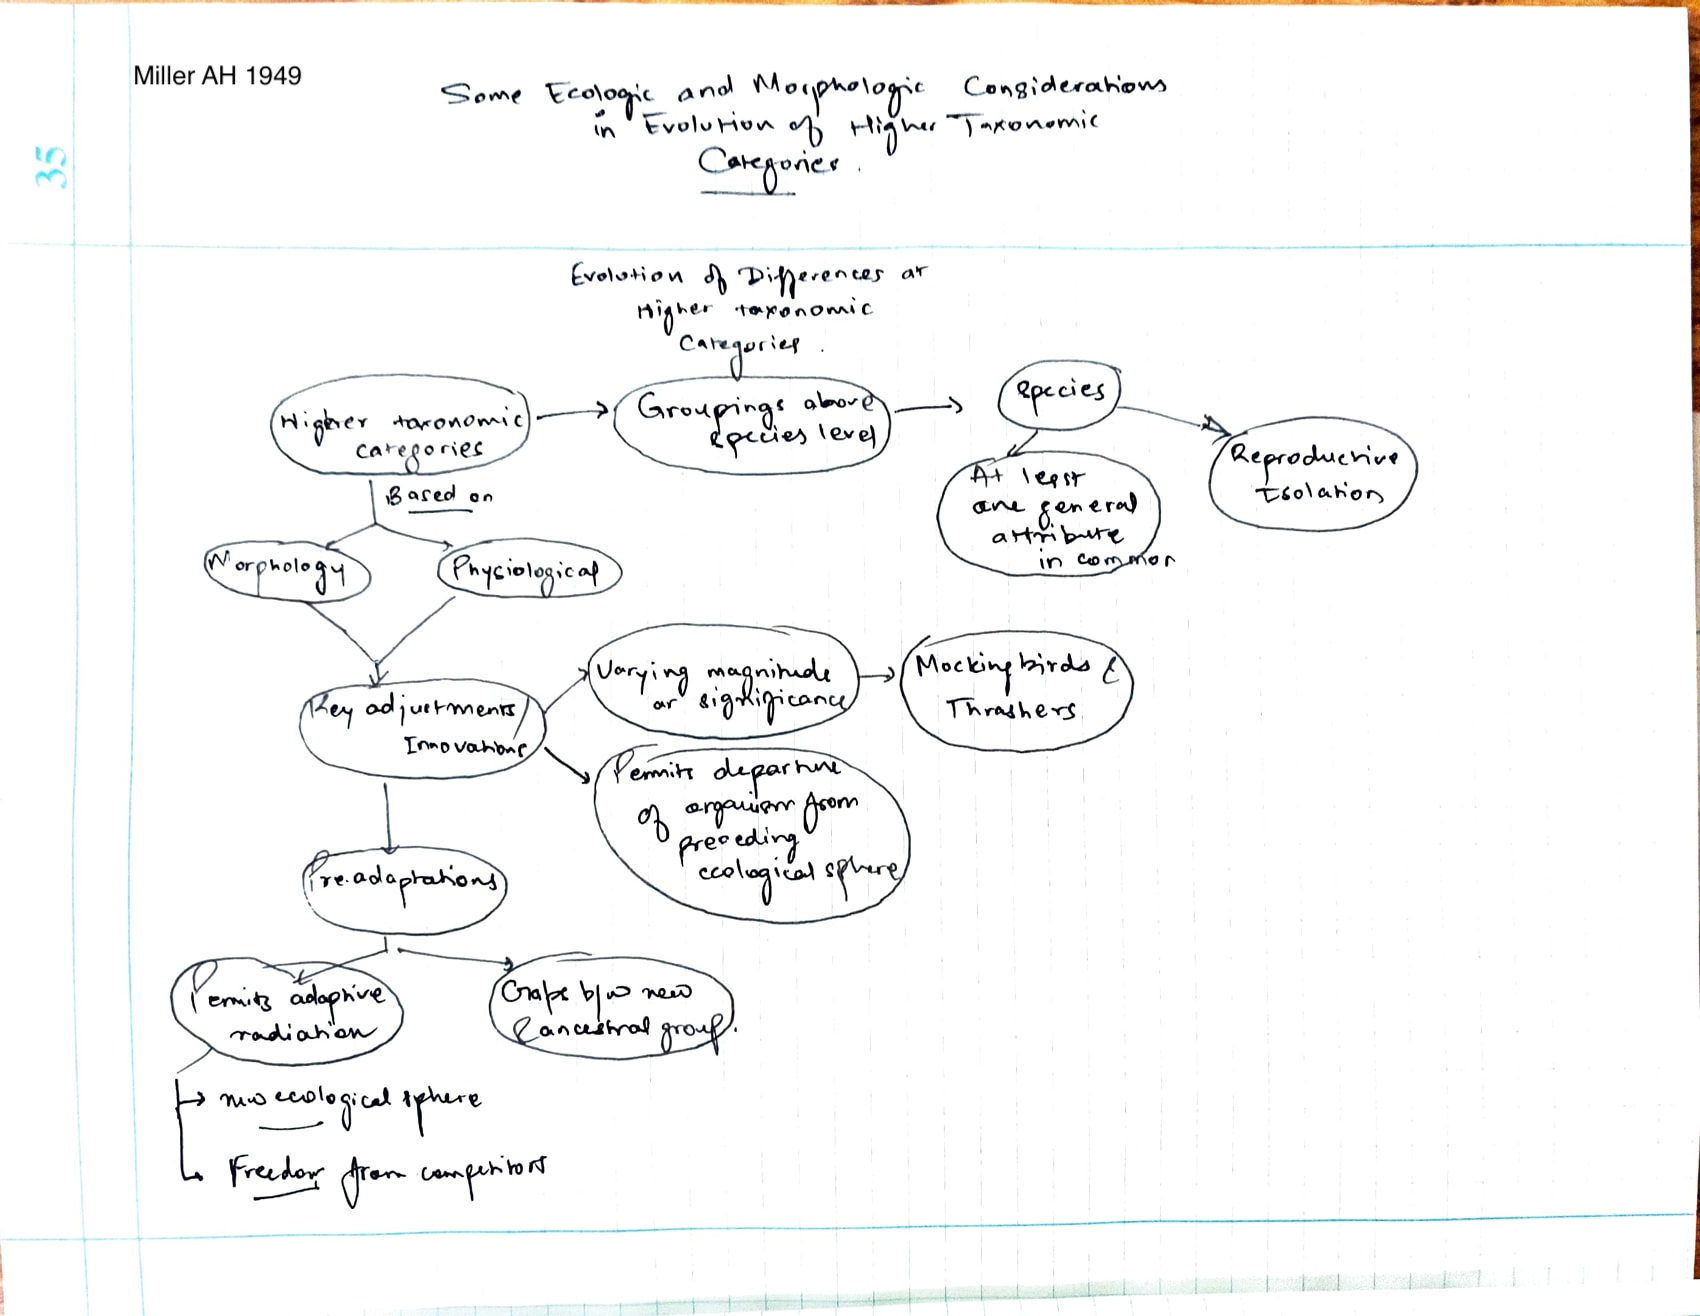 Miller AH 1949
Some Ecologic and Morphologic Considerations
in Evolution of Higher Taxonomic
Categories.
35
Evolution of Differences at
Higher taxonomic
Categories.
Higher taxonomic
categories
Groupings above
species level
Species
At least
one general
attribute
in common
Reproductive
Isolation
Based on
Morphology
Physiological
Key adjustments/
Innovations
Varying magnitude
or significance
Mockingbirds &
Thrashers
Permits departure
of organism from
preceding
ecological sphere
Pre-adaptations
Permits adaptive
radiation
Gaps b/w new
& ancestral group.
new ecological sphere
Freedom from competitors